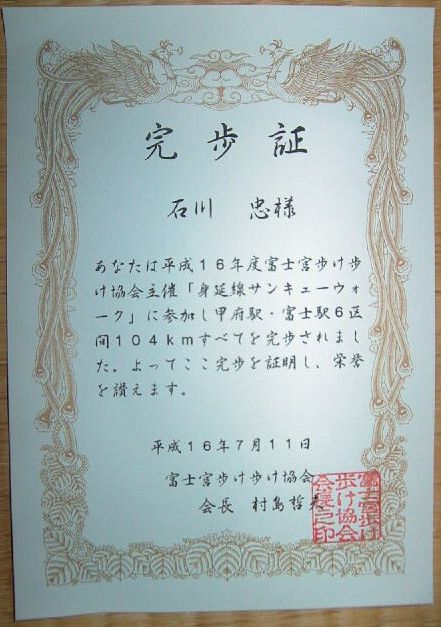 完歩証
石川 忠様
あなたは平成16年度富士宮歩け歩
け協会主催「身延線サンキューウォ
ーク」に参加し甲府駅・富士駅6区
間104kmすべてを完歩されまし
た。よってここ完歩を証明し、栄誉
を讃えます。
平成16年7月11日
富士宮歩け歩け協会
会長 村島哲夫
富士宮歩け
歩け協会
会長之印